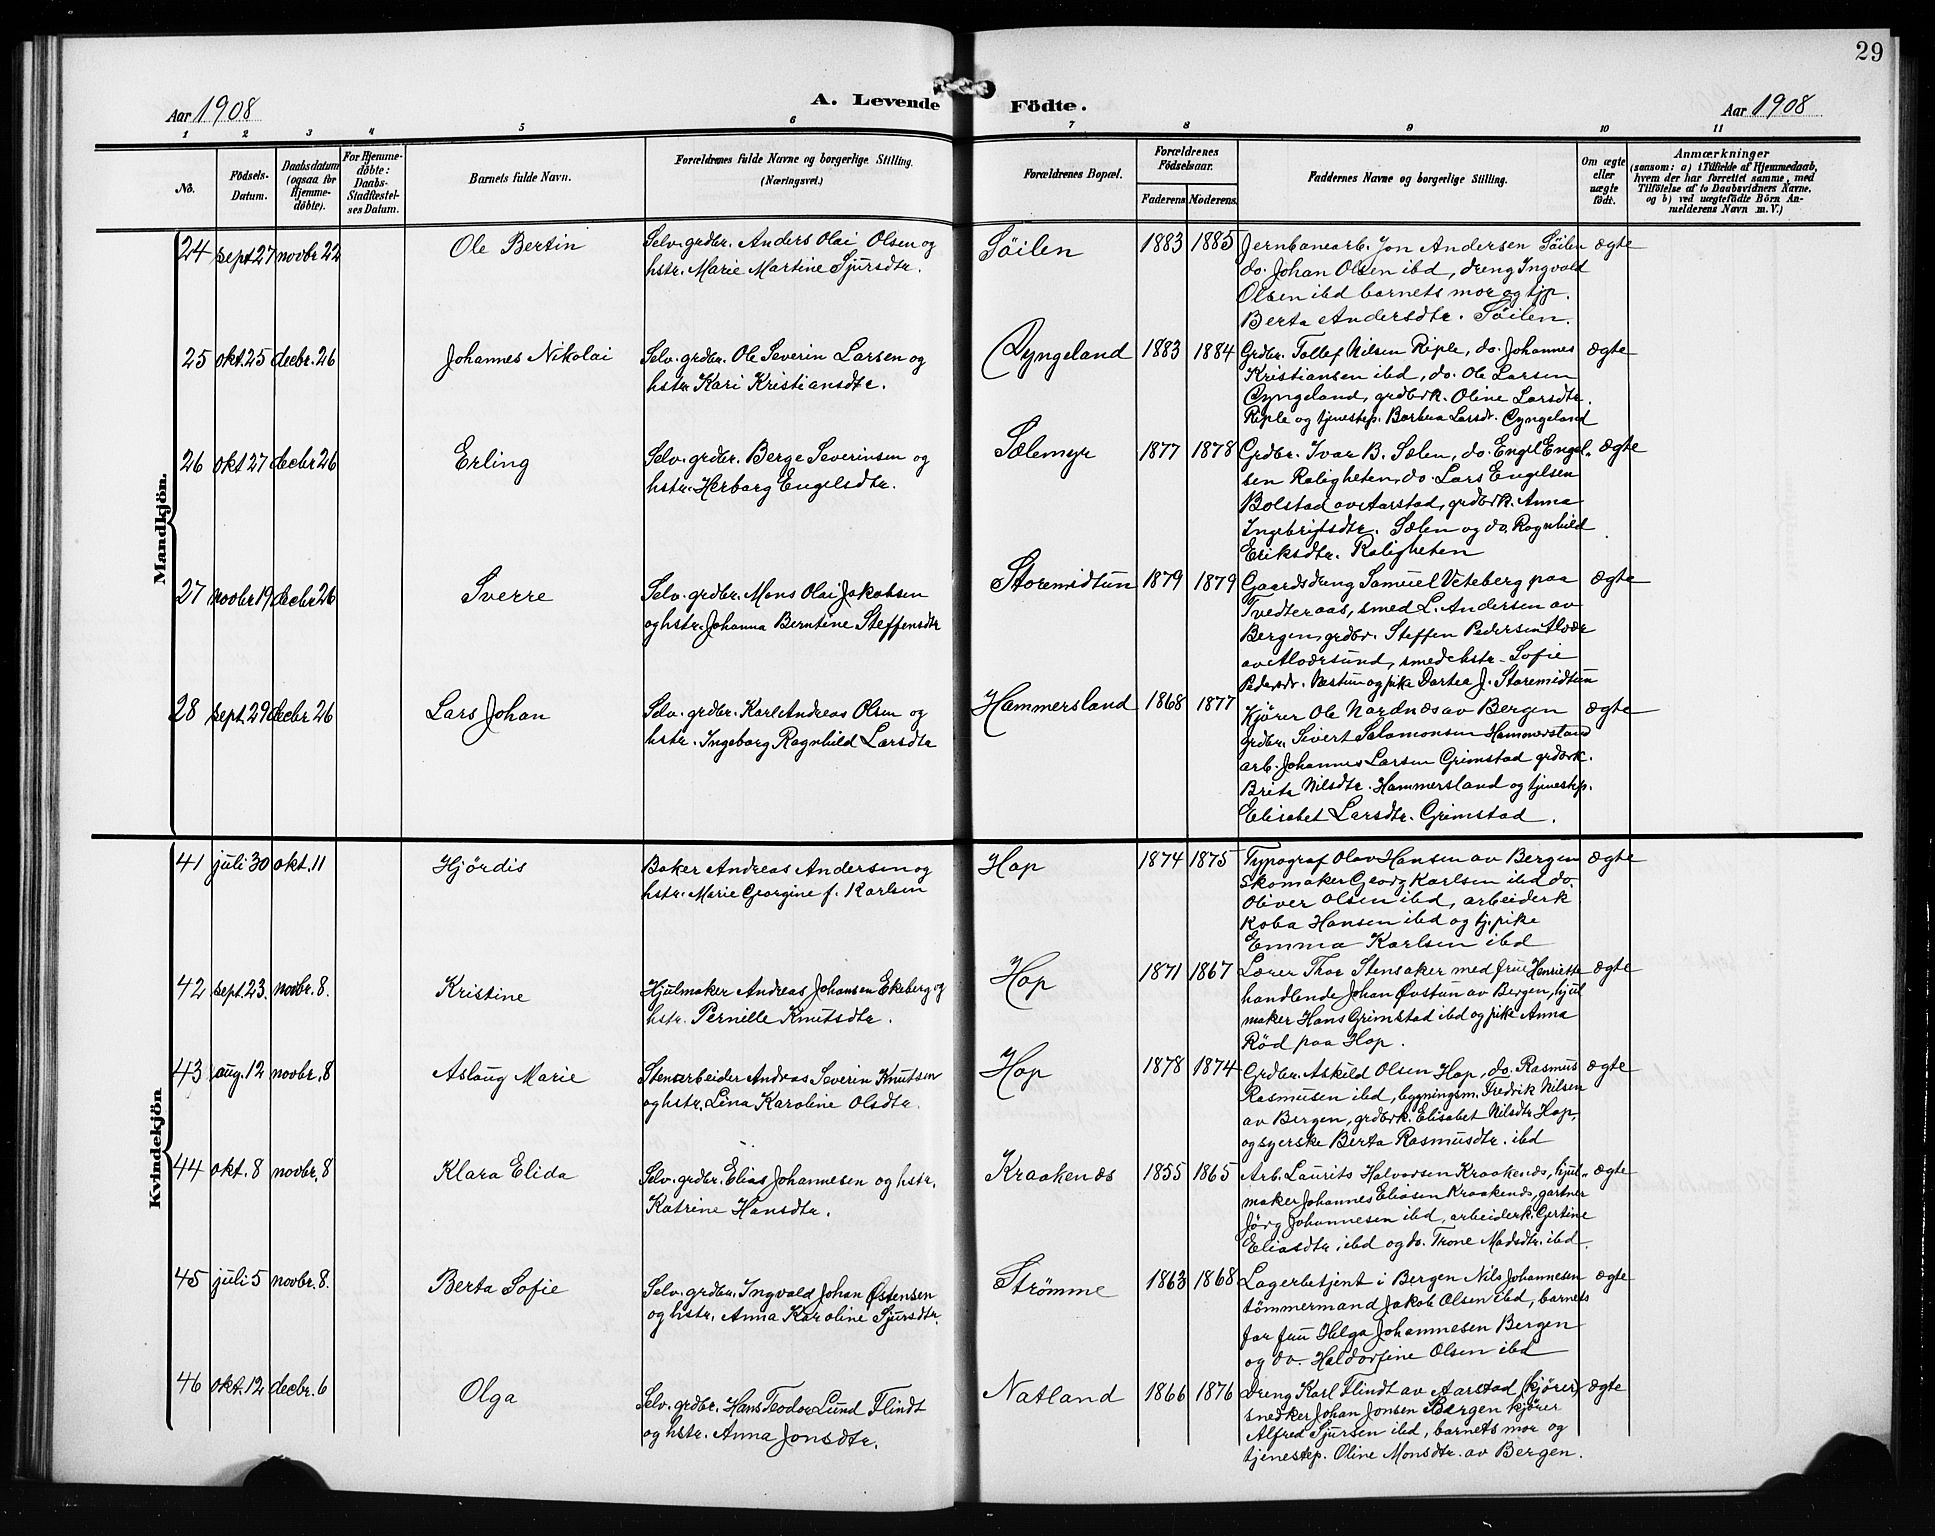 29
Aar 1908
A. Levende Födte.
Aar 1908
1 2 3 4 5 6 7 8 9 10 11
No.
Födsels-
Datum.
Daabsdatum
(ogsaa for
Hjemme-
döbte).
For Hjemme-
döbte:
Daabs-
Stadfæstel-
ses Datum.
Barnets fulde Navn.
Forældrenes fulde Navne og borgerlige Stilling.
(Næringsvei.)
Forældrenes Bopæl.
Forældrenes
Födselsaar.
Faderens Moderens.
Faddernes Navne og borgerlige Stilling.
Om ægte
eller
uægte
födt.
Anmærkninger
(saasom: a) i Tilfælde af Hjemmedaab,
hvem der har forrettet samme, med
Tilföielse af to Daabsvidners Navne,
og b) ved uægtefödte Börn An-
melderens Navn m. V.)
Mandkjön.
24 sept 27 novbr 22 Ole Bertin
Selv. grdbr. Anders Olai Olsen og
hstr. Marie Martine Sjursdtr.
Söilen 1883 1885
Jernbanearb. Jon Andersen Söilen
do. Johan Olsen ibd, dreng Ingvald
Olsen ibd barnets mor og tjp.
Berta Andersdtr. Söilen.
ægte
25 okt. 25 decbr. 26 Johannes Nikolai
Selv. grdbr. Ole Severin Larsen og
hstr. Kari Kristiansdtr.
Dyngeland 1883 1884
Grdbr. Tollef Nilsen Riple, do. Johannes
Kristiansen ibd, do. Ole Larsen
Dyngeland, grdbrk. Oline Larsdtr.
Riple og tjenestep. Barbra Larsdr. Dyngeland
ægte
26 okt 27 decbr 26 Erling
Selv. grdbr. Berge Severinsen og
hstr. Herborg Engelsdtr.
Sælemyr 1877 1878
Grdbr. Ivar B. Sælen, do. Engel Engel-
sen Roligheten, do. Lars Engelsen
Bolstad av Aarstad, grdbrk. Anna
Ingebrigtsdtr. Sælen og do. Ragnhild
Eriksdtr. Roligheten
ægte
27 novbr 19 decbr 26 Sverre
Selv. grdbr. Mons Olai Jakobsen
og hstr. Johanna Berntine Steffensdtr
Storemidtun 1879 1879
Gaardsdreng Samuel Veteberg paa
Tvedteraas, smed L. Andersen av
Bergen, grdbr. Steffen Pedersen Alvær
av Alværsund, smedehstr. Sofie
Pedersdr. Næstun og pike Dortea J. Storemidtun
ægte
28 sept. 29 decbr 26 Lars Johan
Selv. grdbr. Karl Andreas Olsen og
hstr. Ingeborg Ragnhild Larsdtr
Hammersland 1868 1877
Kjører Ole Nordnæs av Bergen
grdbr. Sivert Salamonsen Hammersland
arb. Johannes Larsen Grimstad grdbrk.
Brita Nilsdtr. Hammersland og tjenestep.
Elisabet Larsdtr. Grimstad.
ægte
Kvindekjön
41 juli 30 okt. 11 Hjørdis
Baker Andreas Andersen og
hstr. Marie Georgine f. Karlsen
Hop 1874 1875
Typograf Olav Hansen av Bergen
Skomaker Georg Karlsen ibd do.
Oliver Olsen ibd, arbeiderk
Koba Hansen ibd og tj. pike
Emma Karlsen ibd
ægte
42 sept. 23. novbr. 8. Kristine
Hjulmaker Andreas Johansen Ekeberg og
hstr. Pernille Knutsdtr.
Hop 1871 1867
Lærer Thor Stensaker med frue Henriette
handlende Johan Øvstun av Bergen, hjul
maker Hans Grimstad ibd og pike Anna
Rød paa Hop.
ægte
43 aug. 12 novbr. 8 Aslaug Marie
Stenarbeider Andreas Severin Knutsen
og hstr. Lina Karoline Olsdtr.
Hop 1878 1874
Grdbr. Askild Olsen Hop, do. Rasmus
Rasmusen ibd, bygningsm. Fredrik Nilsen
av Bergen, grdbrk. Elisabet Nilsdtr Hop,
og syerske Berta Rasmusdtr. ibd
ægte
44 okt. 8 novbr. 8 Klara Elida
Selv. grdbr. Elias Johannesen og hstr.
Katrine Hansdtr.
Kraakenæs 1855 1865
Arb. Laurits Halvorsen Kraakenæs, hjul-
maker Johannes Eliasen Kraakenæs, gartner
Jörg Johannesen ibd, arbeiderk. Gertine
Eliasdtr. ibd og do. Trone Madsdtr. ibd.
ægte
45 juli 5 novbr. 8. Berta Sofie
Selv. grdbr. Ingvald Johan Østensen
og hstr. Anna Karoline Sjursdtr.
Strømme 1863 1868
Lagerbetjent i Bergen Nils Johannesen
tömmermand Jakob Olsen ibd, barnets
far fru Helga Johannesen Bergen
og do. Haldorfine Olsen ibd
ægte
46 okt. 12 decbr. 6 Olga
Selv. grdbr. Hans Teodor Lund Flindt
og hstr. Anna Jonsdtr.
Natland 1866 1876
Dreng Karl Flindt av Aarstad (kjører)
snedker Johan Jonsen Bergen kjører
Alfred Sjursen ibd, barnets mor og
tjenestep. Oline Monsdtr. av Bergen.
ægte